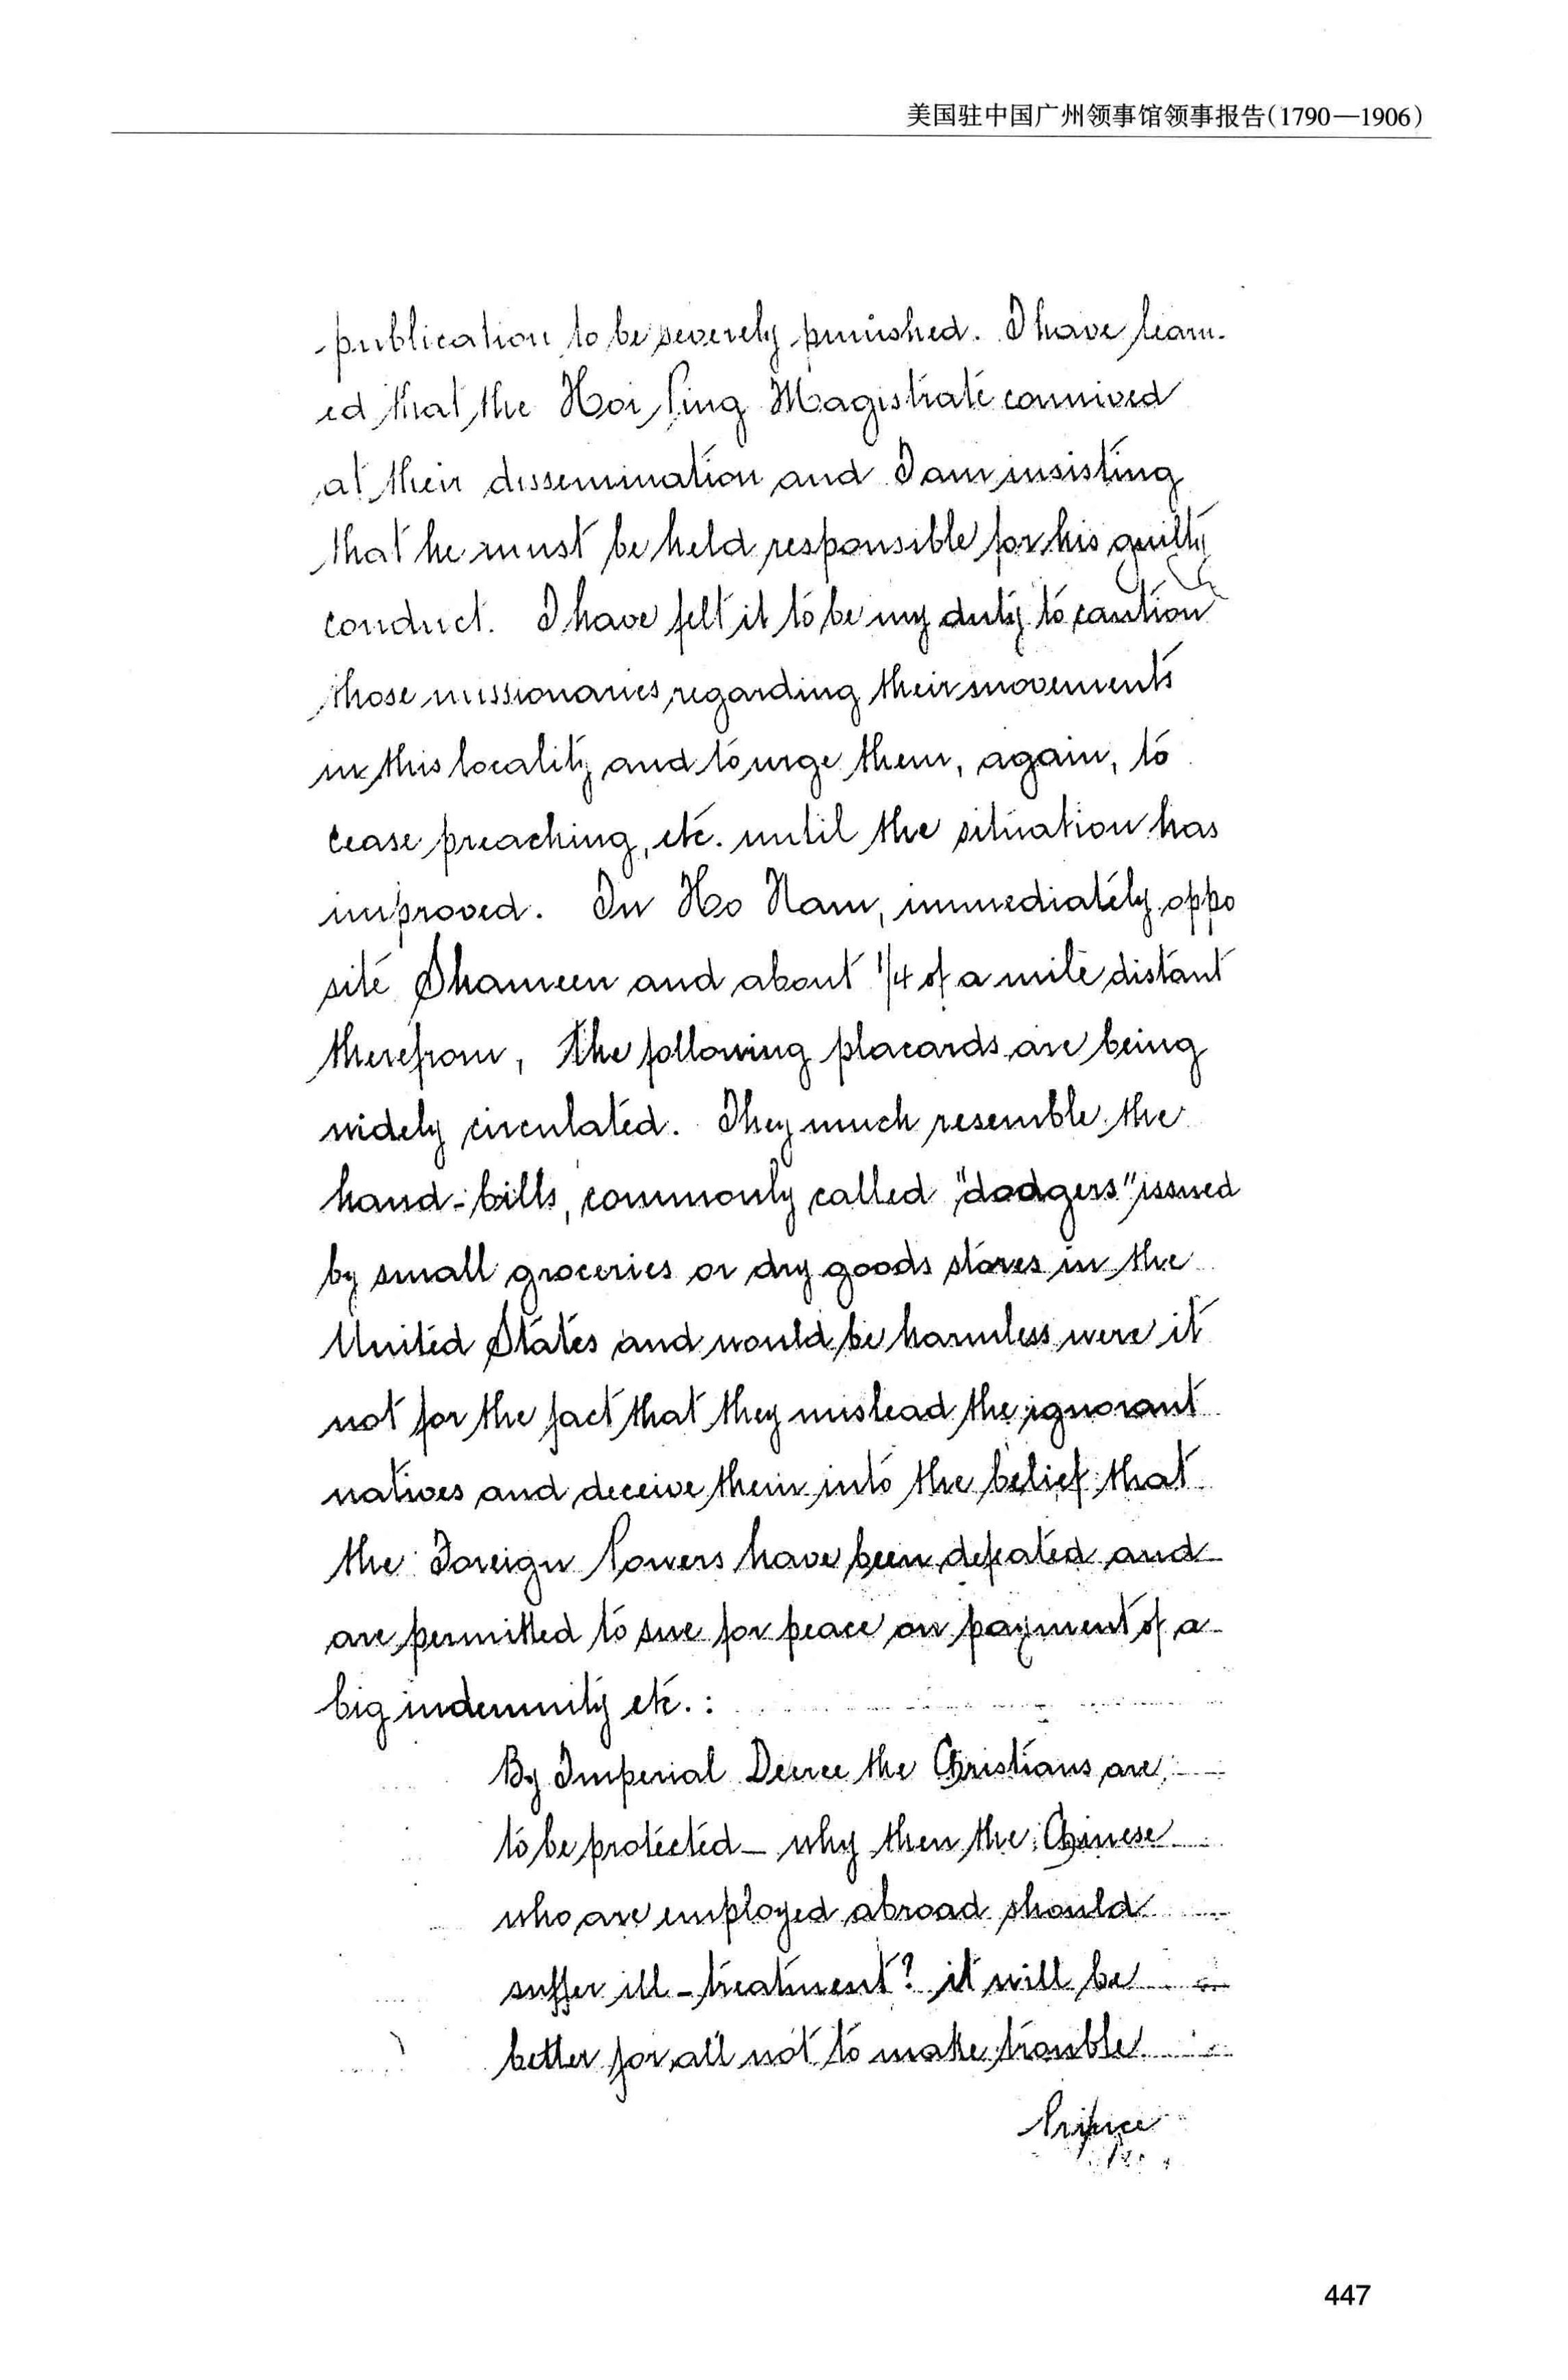 美国驻中国广州领事馆领事报告(1790—1906)
publication to be severely punished. I have learn-
ed that the Hoi Ping Magistrate connived
at their dissemination and I am insisting
that he must be held responsible for his guilty
conduct. I have felt it to be my duty to caution
those missionaries regarding their movements
in this locality and to urge them, again, to
cease preaching, etc. until the situation has
improved. In Ho Nam, immediately oppo
site Shameen and about 1/4 of a mile distant
therefrom, the following placards are being
widely circulated. They much resemble the
hand-bills, commonly called "dodgers" issued
by small groceries or dry goods stores in the
United States and would be harmless were it
not for the fact that they mislead the ignorant
natives and deceive them into the belief that
the Foreign Powers have been defeated and
are permitted to sue for peace on payment of a
big indemnity etc. :
By Imperial Decree the Christians are
to be protected - why then the Chinese
who are employed abroad should
suffer ill-treatment? it will be
better for all not to make trouble.
Prince
447